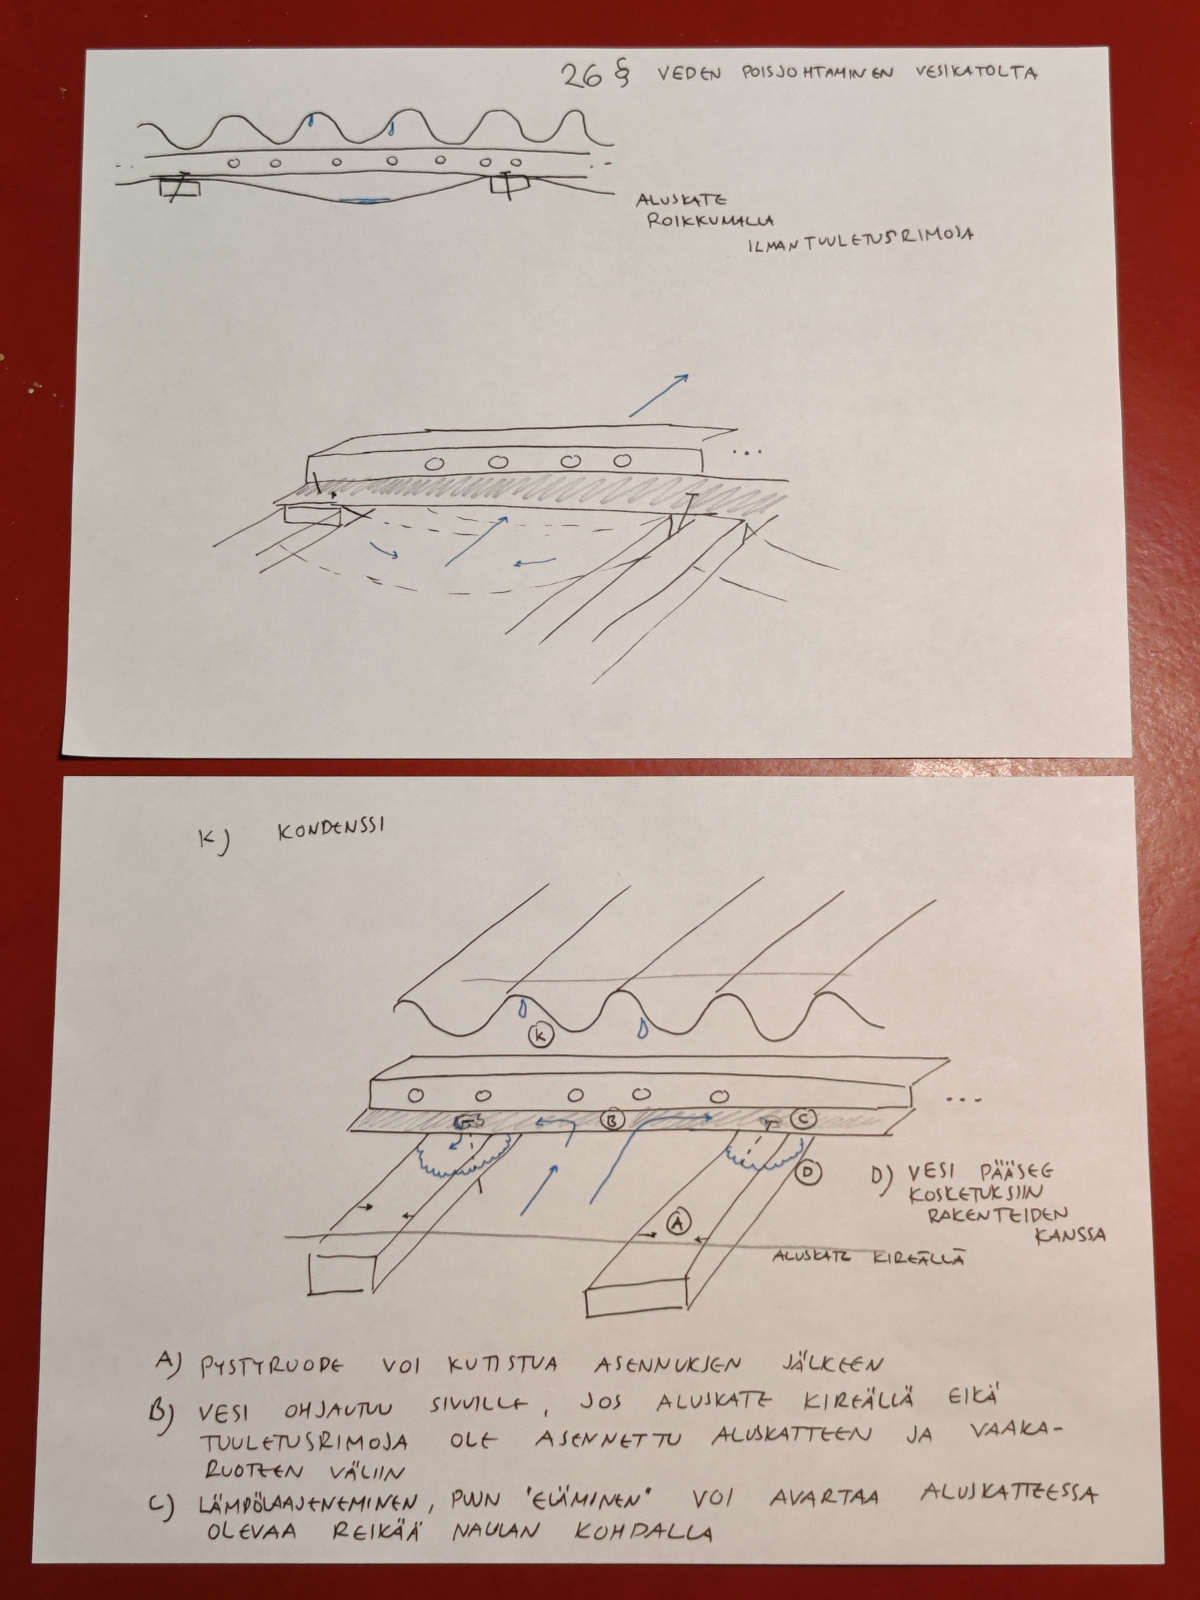 26 § VEDEN POISJOHTAMINEN VESIKATOLTA
ALUSKATE
ROIKKUMALLA
ILMAN TUULETUSRIMOJA
K) KONDENSSI
K
B
C
D
A
D) VESI PÄÄSEE
KOSKETUKSIIN
RAKENTEIDEN
KANSSA
ALUSKATE KIREÄLLÄ
A) PYSTYRUODE VOI KUTISTUA ASENNUKSEN JÄLKEEN
B) VESI OHJAUTUU SIVUILLE, JOS ALUSKATE KIREÄLLÄ EIKÄ
TUULETUSRIMOJA OLE ASENNETTU ALUSKATTEEN JA VAAKA-
RUOTEEN VÄLIIN
C) LÄMPÖLAAJENEMINEN, PUUN "ELÄMINEN" VOI AVARTAA ALUSKATTEESSA
OLEVAA REIKÄÄ NAULAN KOHDALLA